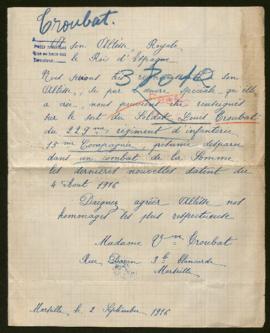 Troubat.
A son Altesse Royale
le Roi d'Espagne
Nous prions
Altesse, si par œuvre spéciale qu'elle
a créé, nous pouvons être renseignés
sur le sort du Soldat Louis Troubat
du 229me régiment d'infanterie
15me Compagnie, présumé disparu
dans un combat de la Somme
les dernières nouvelles datant du
4 Aout 1916
Daignez agréer Altesse nos
hommages les plus respectueuse
Madame Vve Troubat
Rue
Marseille
Marseille, le 2 Septembre 1916